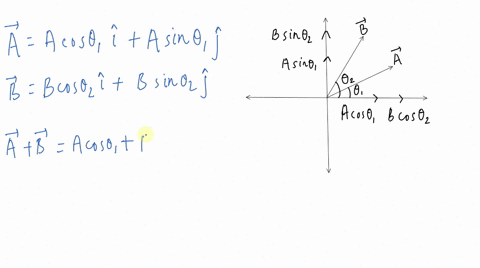 A⃗ = A cosθ₁ î + A sinθ₁ ĵ
B⃗ = B cosθ₂ î + B sinθ₂ ĵ
A⃗ + B⃗ = A cosθ₁ +
B sinθ₂
B⃗
A sinθ₁
A⃗
θ₂
θ₁
A cosθ₁ B cosθ₂